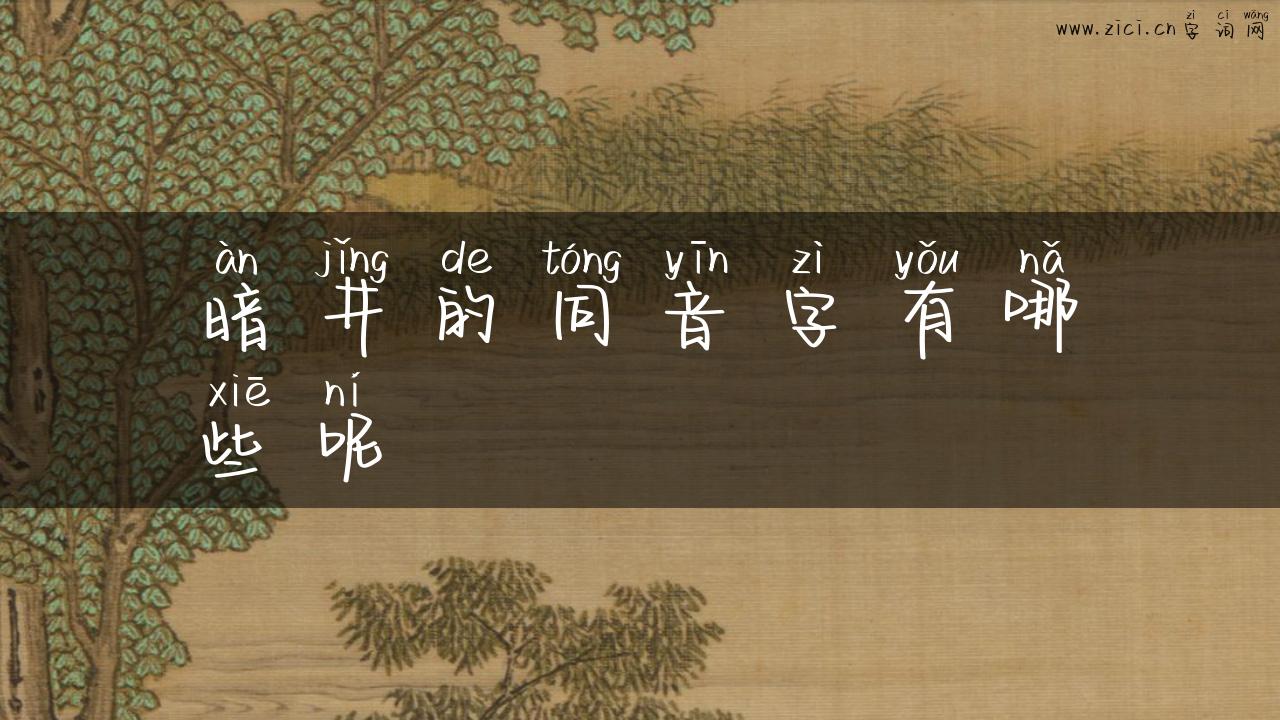 zì cí wǎng
www.zici.cn字词网
àn jǐng de tóng yīn zì yǒu nǎ
暗井的同音字有哪
xiē ní
些呢